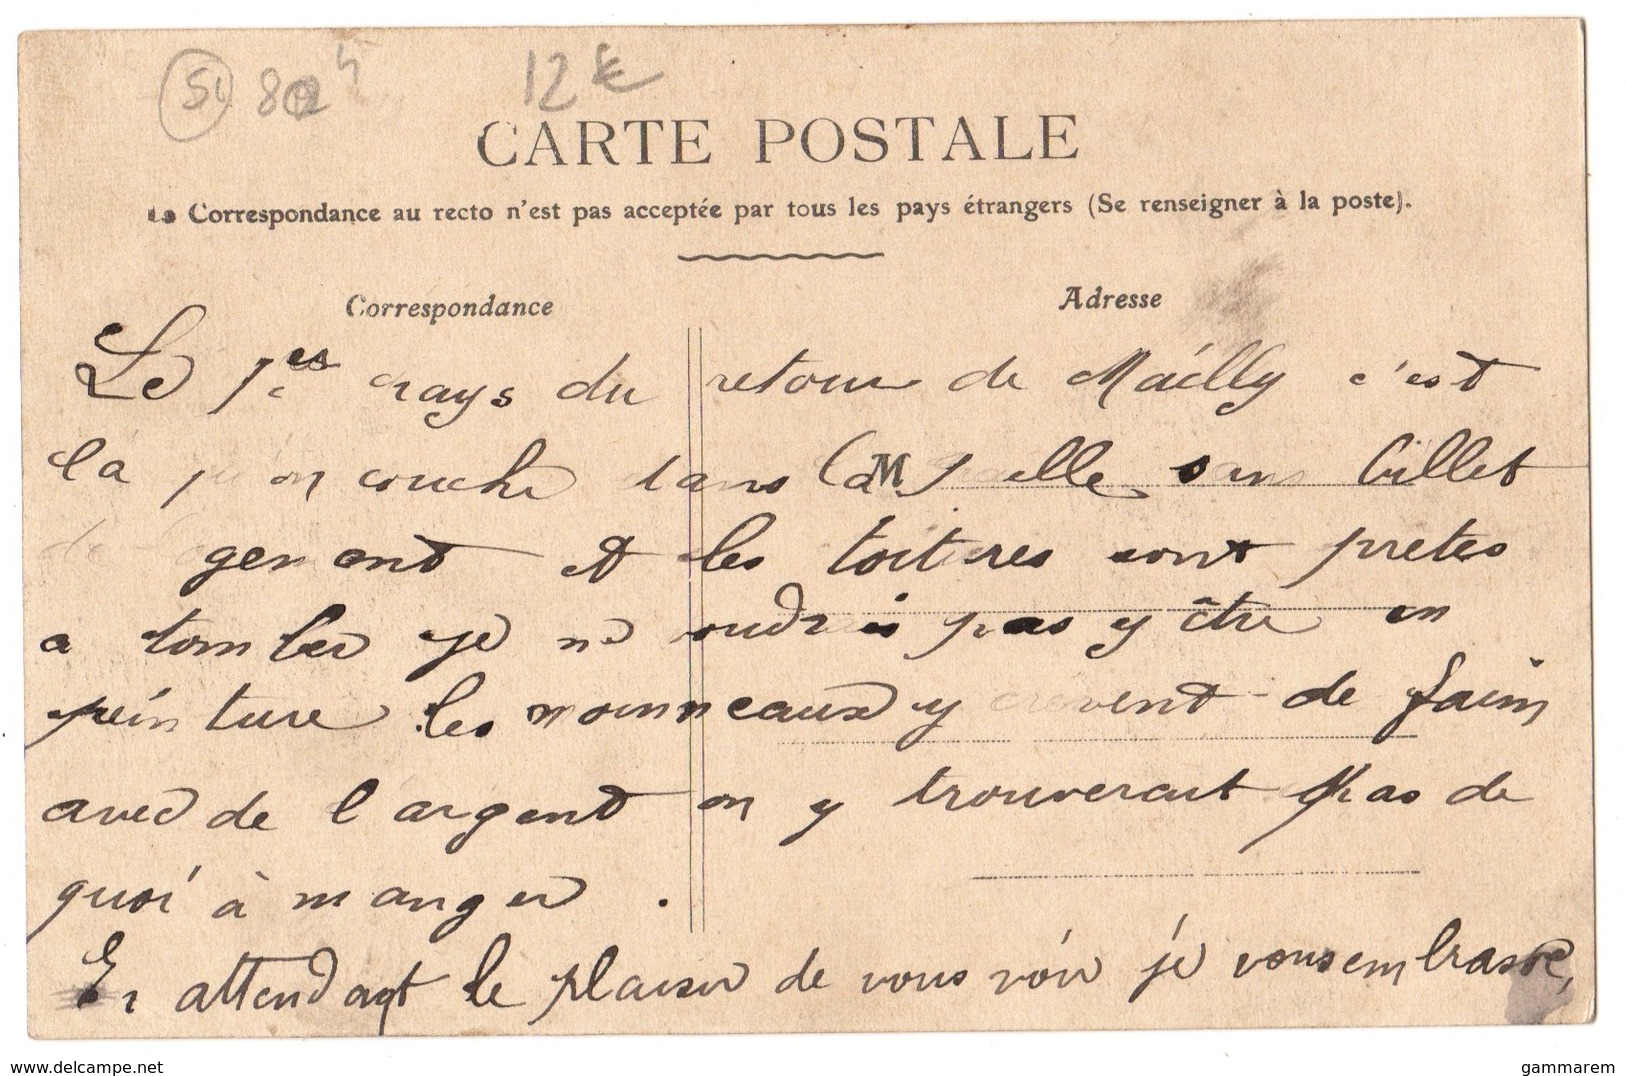 51 80
12 €
CARTE POSTALE
La Correspondance au recto n'est pas acceptée par tous les pays étrangers (Se renseigner à la poste).
Correspondance
Adresse
Le 1er rays du retour de Mailly c'est
là qu'on couche dans la elle sans billet
de gement et les toitures sont pretes
a tomber je ne voudrais pas y être en
peinture les moinneaux y crèvent de faim
avec de l argent on y trouverait pas de
quoi à manger .
En attendant le plaisir de vous voir je vous embrasse,
delcampe.net
gammarem